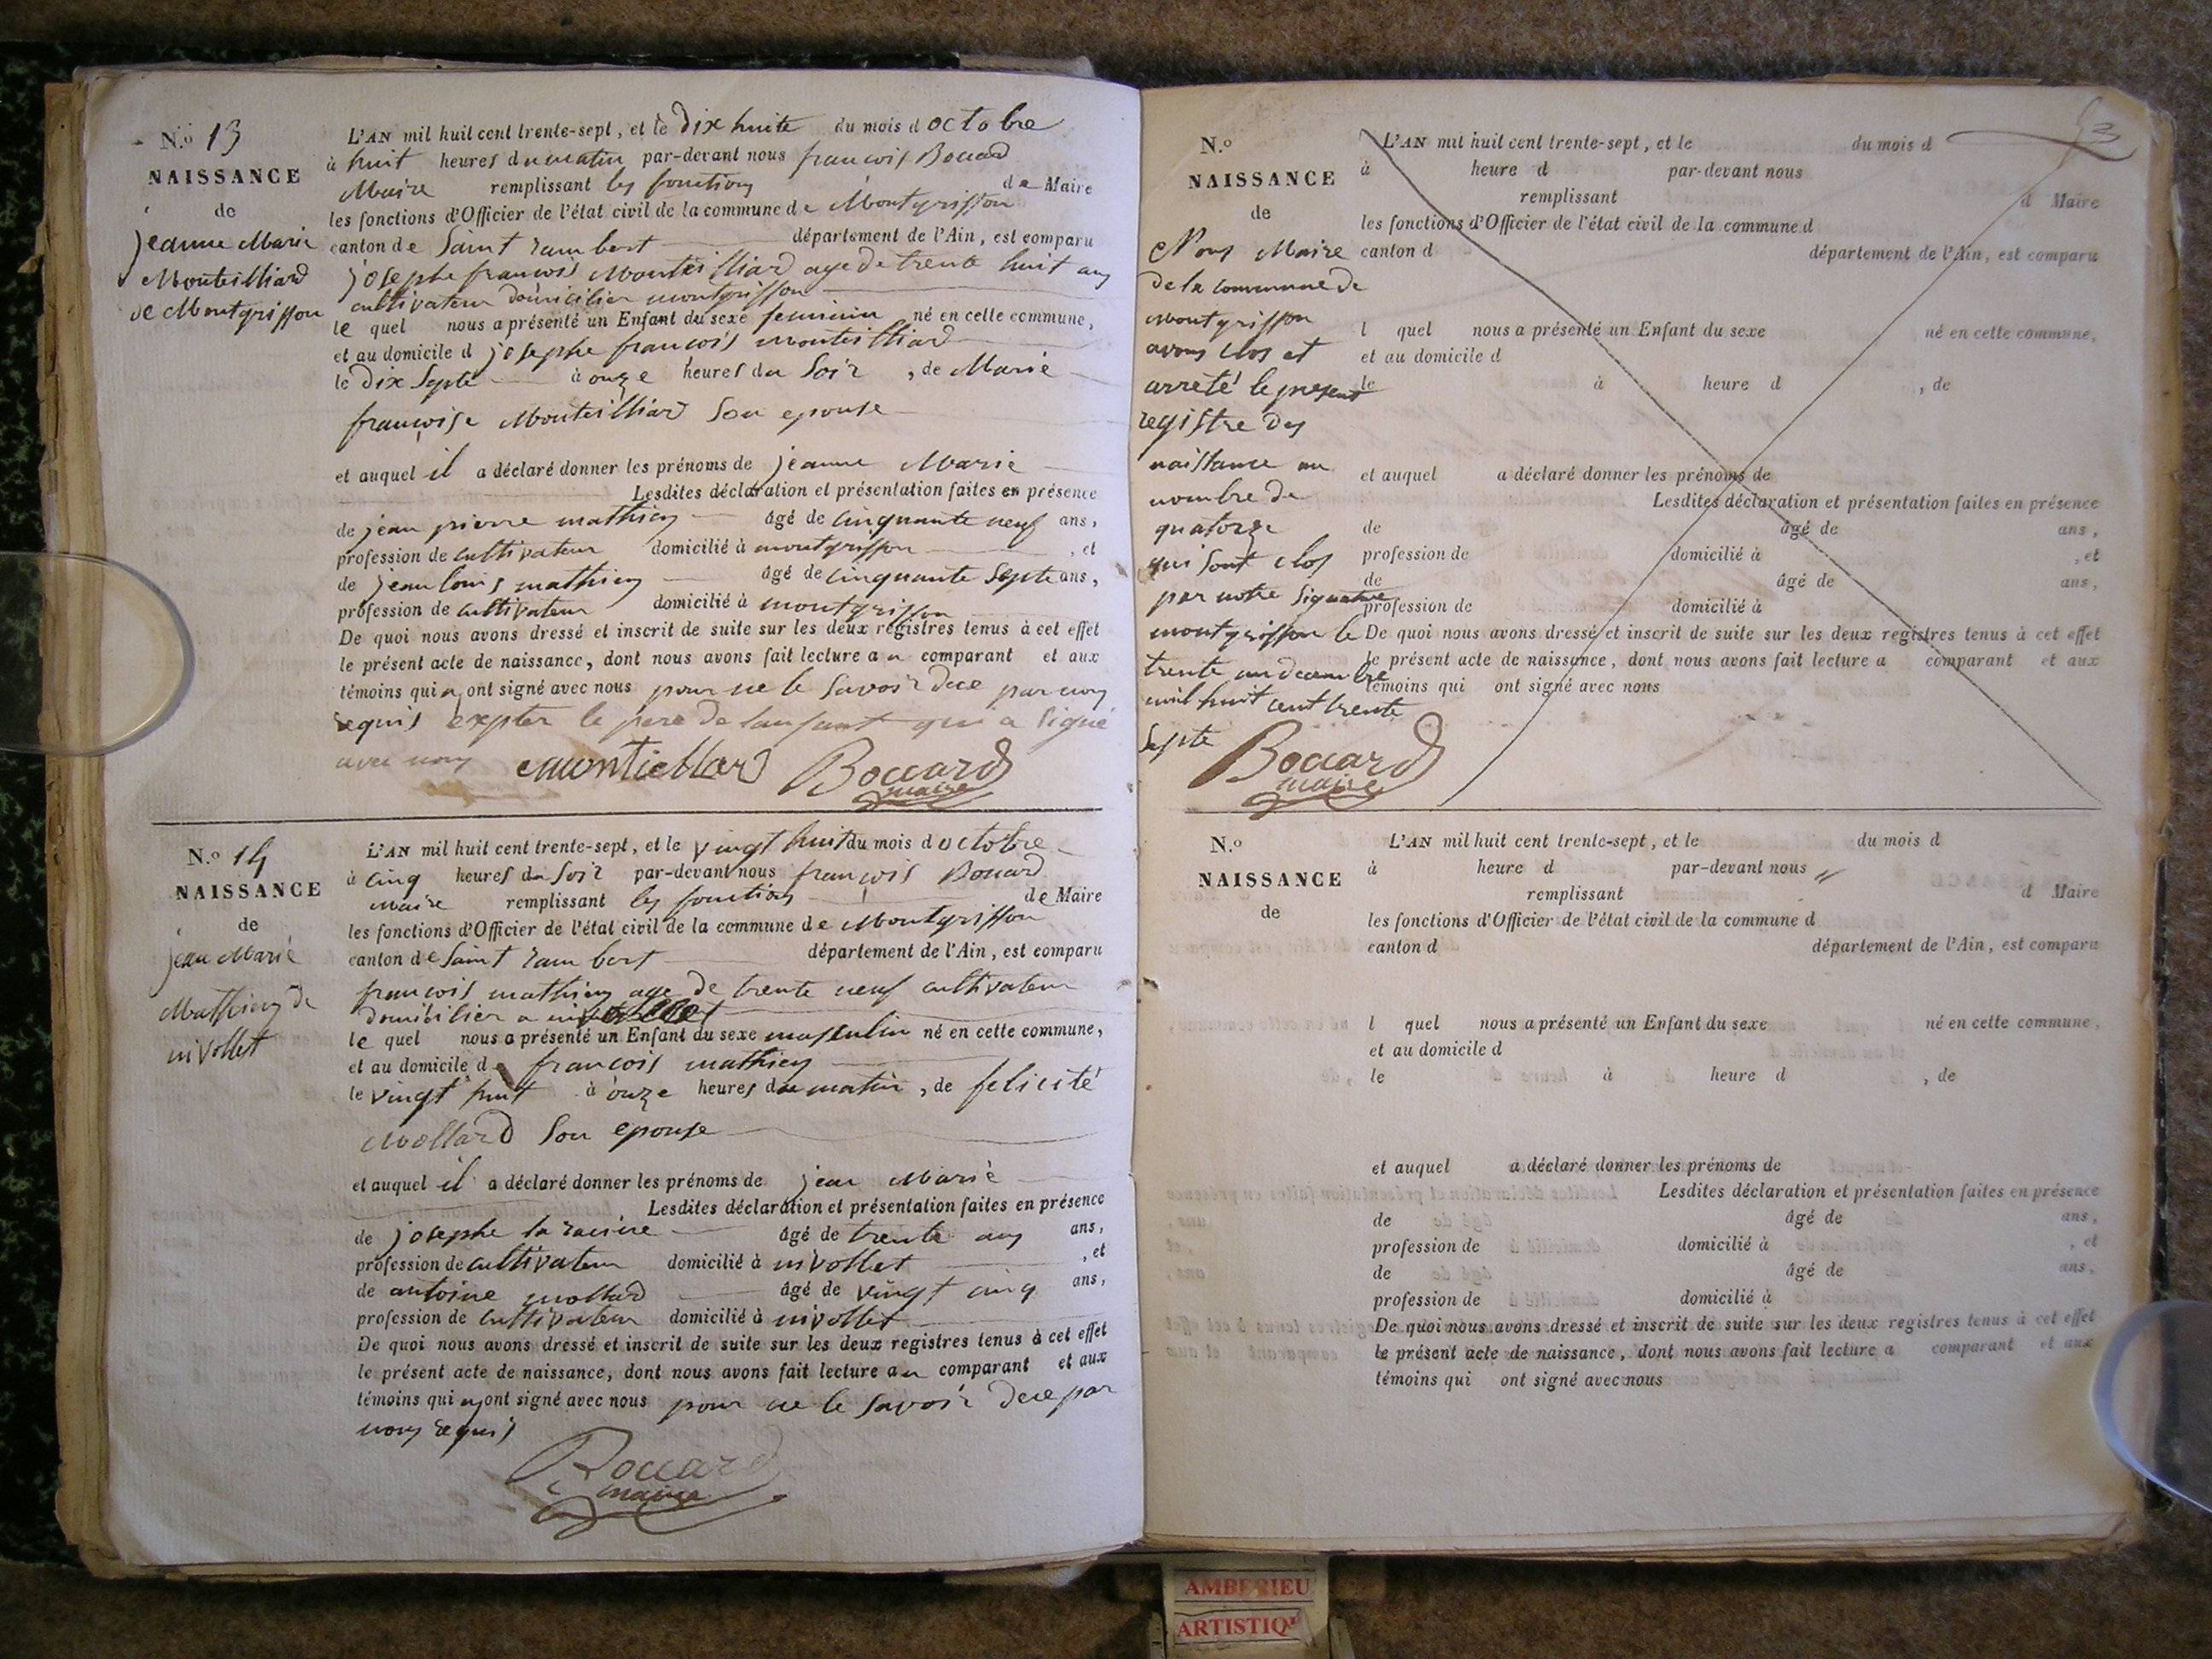 N.o 13
NAISSANCE
de
jeanne Marie
Monteilliard
de Montgriffon
L'AN mil huit cent trente-sept, et le dix huite du mois d octobre
à huit heures du matin par-devant nous francois Bocard
Maire remplissant les fonctions de Maire
les fonctions d'Officier de l'état civil de la commune de Montgriffon
canton de Saint rambert département de l'Ain, est comparu
josephe francois Monteilliard age de trente huit ans
cultivateur domicilier montgriffon
le quel nous a présenté un Enfant du sexe feminin né en cette commune,
et au domicile d josephe francois monteilliard
le dix Septe à onze heures du Soir, de Marie
françoise Monteilliard Son epouse
et auquel il a déclaré donner les prénoms de jeanne Marie
Lesdites déclaration et présentation faites en présence
de jean pierre mathieu âgé de cinquante neuf ans,
profession de cultivateur domicilié à montgriffon, et
de jean louis mathieu âgé de cinquante Septe ans,
profession de cultivateur domicilié à montgriffon
De quoi nous avons dressé et inscrit de suite sur les deux registres tenus à cet effet
le présent acte de naissance, dont nous avons fait lecture au comparant et aux
témoins qui n ont signé avec nous pour ne le Savoir dece par nous
requis expter le pere de lanfant qui a Signé
avec nous Montielliard Boccard
maire
N.o 14
NAISSANCE
de
jean Marie
Mathieu de
nivollet
L'AN mil huit cent trente-sept, et le vingt huit du mois d octobre
à cinq heures du Soir par-devant nous françois Bocard
maire remplissant les fonctions de Maire
les fonctions d'Officier de l'état civil de la commune de Montgriffon
canton de Saint rambert département de l'Ain, est comparu
francois mathieu age de trente neuf cultivateur
domicilier a nivollet
le quel nous a présenté un Enfant du sexe masculin né en cette commune,
et au domicile de francois mathieu
le vingt huit à onze heures du matin, de felicité
Mollard Son epouse
et auquel il a déclaré donner les prénoms de jean Marie
Lesdites déclaration et présentation faites en présence
de josephe la racine âgé de trente ans ans,
profession de cultivateur domicilié à nivollet, et
de antoine mollard âgé de vingt cinq ans,
profession de cultivateur domicilié à nivollet
De quoi nous avons dressé et inscrit de suite sur les deux registres tenus à cet effet
le présent acte de naissance, dont nous avons fait lecture au comparant et aux
témoins qui n ont signé avec nous pour ne le Savoir dece par
nous requis
Boccard
maire
N.o
NAISSANCE
de
Nous Maire
de la commune de
montgriffon
avons clos et
arreté le present
registre des
naissance au
nombre de
quatorze
qui sont clos
par notre Signature
montgriffon le
trente un decembre
mil huit cent trente
Septe
Boccard
maire
L'AN mil huit cent trente-sept, et le du mois d
à heure d par-devant nous
remplissant d Maire
les fonctions d'Officier de l'état civil de la commune d
canton d département de l'Ain, est comparu
l quel nous a présenté un Enfant du sexe né en cette commune,
et au domicile d
le à heure d , de
et auquel a déclaré donner les prénoms de
Lesdites déclaration et présentation faites en présence
de âgé de ans,
profession de domicilié à , et
de âgé de ans,
profession de domicilié à
De quoi nous avons dressé et inscrit de suite sur les deux registres tenus à cet effet
le présent acte de naissance, dont nous avons fait lecture a comparant et aux
témoins qui ont signé avec nous
N.o
NAISSANCE
de
L'AN mil huit cent trente-sept, et le du mois d
à heure d par-devant nous
remplissant d Maire
les fonctions d'Officier de l'état civil de la commune d
canton d département de l'Ain, est comparu
l quel nous a présenté un Enfant du sexe né en cette commune,
et au domicile d
le à heure d , de
et auquel a déclaré donner les prénoms de
Lesdites déclaration et présentation faites en présence
de âgé de ans,
profession de domicilié à , et
de âgé de ans,
profession de domicilié à
De quoi nous avons dressé et inscrit de suite sur les deux registres tenus à cet effet
le présent acte de naissance, dont nous avons fait lecture a comparant et aux
témoins qui ont signé avec nous
AMBERIEU
ARTISTIQU